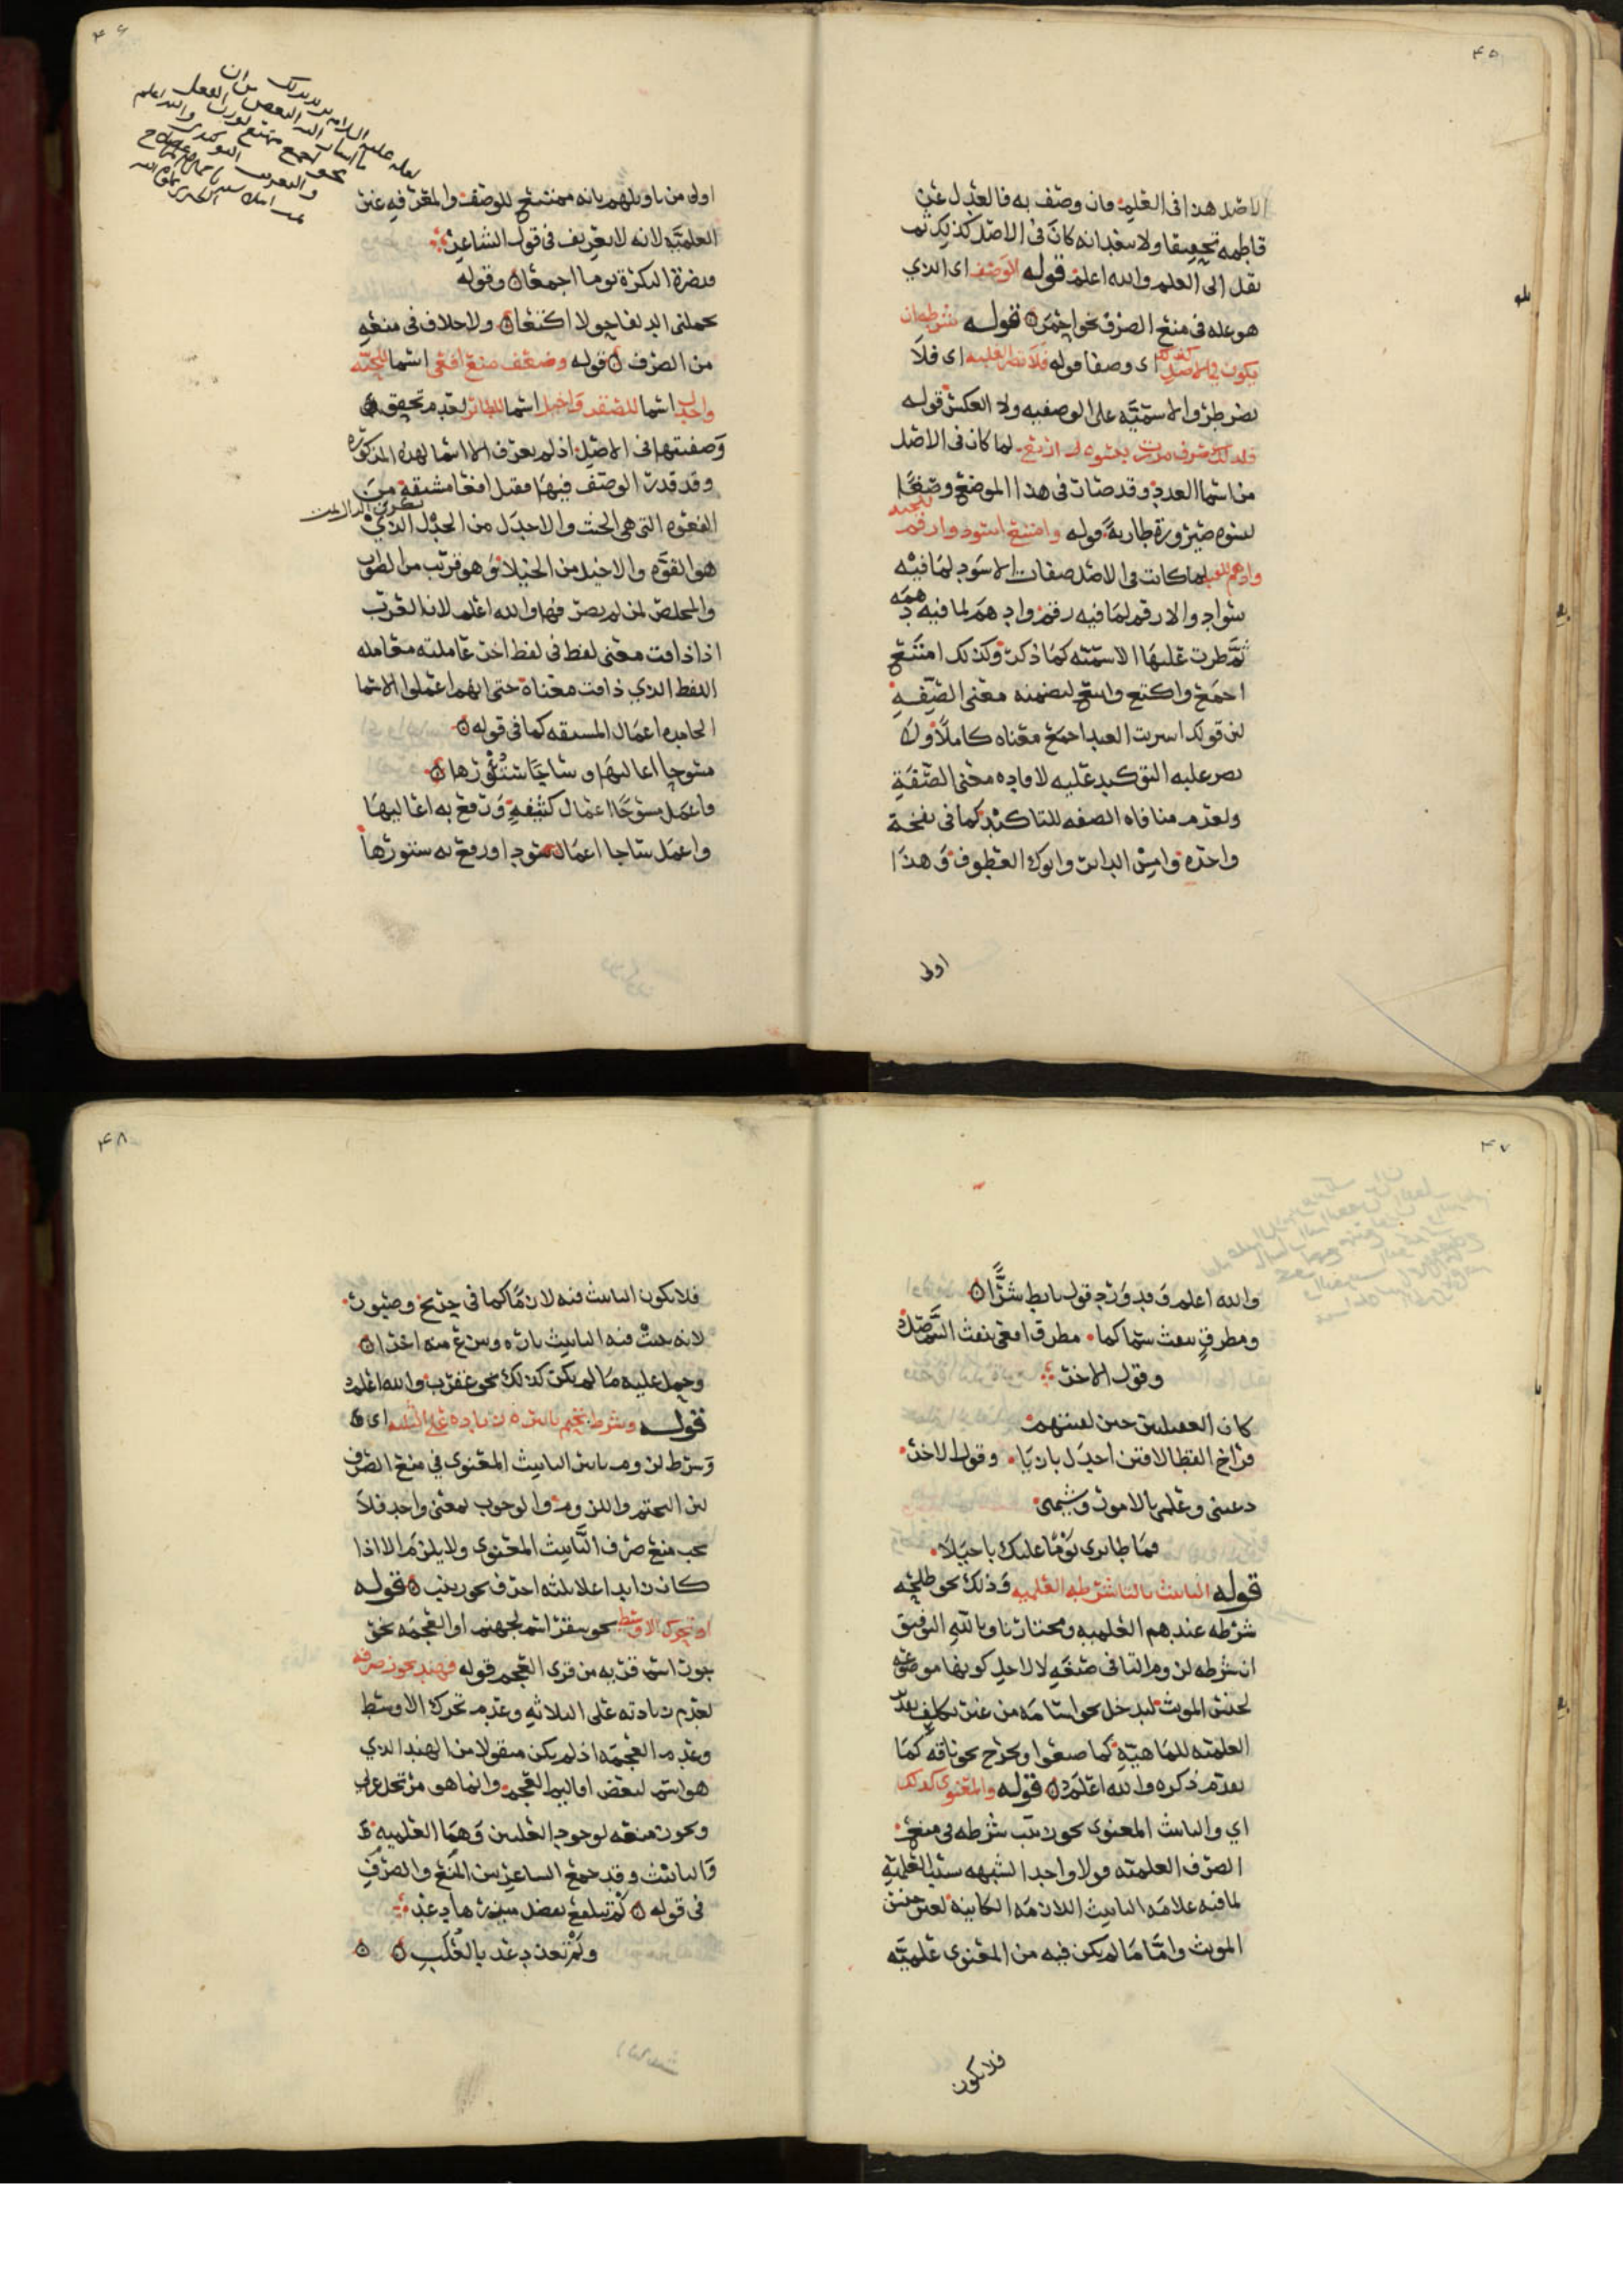 ٤٥
الاصل هذا فى العلم وان وصف به فالعدل عن
فاطمه تحقيقا ولا سعد انه كان فى الاصل كذلك ثم
نقل الى العلم والله اعلم قوله الوصف اى الذي
هو عله فى منع الصرف نحو احمر قوله شرطه ان
يكون فى الاصل كذلك اى وصفا قوله فلا تضر الغلبه اى فلا
يضر طرو الاسميّه على الوصفيه ولا العكس قوله
فلذلك صرف مررت بنسوه اربع لما كان فى الاصل
من اسما العدد وقد صار فى هذا الموضع وصفا
لنسوه صيرورة طاريه قوله وامتنع اسود وارقم للحيه
وادهم للقيد لما كانت فى الاصل صفات الاسود لما فيه
سواد والارقم لما فيه رقم وادهم لما فيه دهمه
ثم طرت عليها الاسميّه كما ذكرت وكذلك امتنع
اجمع واكتع وابتع لتضمنه معنى الصفه
لان قولك اشريت العبد اجمع معناه كاملا ولا
يضر غلبه التوكيد عليه لافاده معنى الصفة
ولعدم منافاه الصفه للتاكيد كما فى نفخة
واحده وامس الدابر وابوك العطوف وهذا
اولى
٤٦
اولى من تاويلهم بانه ممتنع للوصف والمعرفه غير
العلميّه لانه لا تعريف فى قول الشاعر
وبصرة البكرة يوما اجمعا وقوله
تحملنى الدلفا حولا اكتعا ولا خلاف فى منعه
من الصرف قوله وضعف منع افعى اسما للحيّه
واجدل اسما للصقر واخيل اسما للطائر لعدم تحقق
وصفيتها فى الاصل اذ لم يعرف الا اسما لهذه المذكوره
وقد قدرت الوصف فيها فقيل افعا مشتقه من
الفعوه التى هى الخبث والاجدل من الجدل الذي
هو القوّه والاخيل من الخيلا وهو قريب من الصواب
والمخلص لمن لم يصرفها والله اعلم لان العرب
اذا ذاقت معنى لفظ فى لفظ اخر عاملته معامله
اللفظ الذي ذاقت معناه حتى انهم اعملوا الاسما
الجامده اعمال المشتقه كما فى قوله
مسوجا اعاليها وساجا ستورها
واعمل مسوجا اعمال كثيفه ورفع به اعاليها
واعمل ساجا اعمال سود ورفع به ستورها
٤٧
والله اعلم وقد ورد قول تابط شرّا
ومطرق ينفث سما كما مطرق افعى ينفث السم صل
وقول الاخر
كان العقيليين حين لقيتهم
فراخ القطا لاقين اجدل بازيا وقول الاخر
دعينى وعلمى بالامور وشيمتى
فما طائري يوما عليك باخيلا
قوله التانيث بالتا شرطه العلميه وذلك نحو طلحه
شرطه عندهم العلميه ومختارنا وبالله التوفيق
ان شرطه لزوم التا فى صنعه لا لاجل كونها موضوعه
لجنس المونث ليدخل نحو اسامه من غير تكلف بقدر
العلميّه للماهيّه كما صنعوا ويخرج نحو ناقه كما
تقدم ذكره والله اعلم قوله والمعنوى كذلك
اي والتانيث المعنوى نحو زينب شرطه فى منع
الصرف العلميّه قولا واحدا لشبهه
لما فيه علامه التانيث اللازمه الكائنه لغير جنس
المونث واما ما لم يكن فيه من المعنوى علميّه
فلا يكون
٤٨
فلا يكون التانيث فيه لازما كما فى جريح وصبور
لانه يثبت فيه التانيث تاره وينزع منه اخرا
وحمل عليه ما لم يكن كذلك نحو عقرب والله اعلم
قوله وشرط تحتم تاثيره زياده على الثلثه اى
وشرط لزوم تاثير التانيث المعنوى فى منع الصرف
لان التحتم واللزوم والوجوب بمعنى واحد فلا
يجب منع صرف التانيث المعنوى ولا يلزم الا اذا
كان زايدا على ثلثه احرف نحو زينب قوله
او تحرك الاوسط نحو سقر اسم لجهنم او العجمه نحو
جور اسم قريه من قرى العجم قوله فهند يجوز صرفه
لعدم زيادته على الثلاثه وعدم تحرك الاوسط
وعدم العجمه اذ لم يكن منقولا من الهند الذي
هو اسم لبعض اقاليم العجم وانما هو مرتجل عربى
ويجوز منعه لوجود العلتين وهما العلميه
والتانيث وقد جمع الشاعر بين المنع والصرف
فى قوله لم تتلفع بفضل ميزرها دعد
ولم تغذ دعد بالعلب